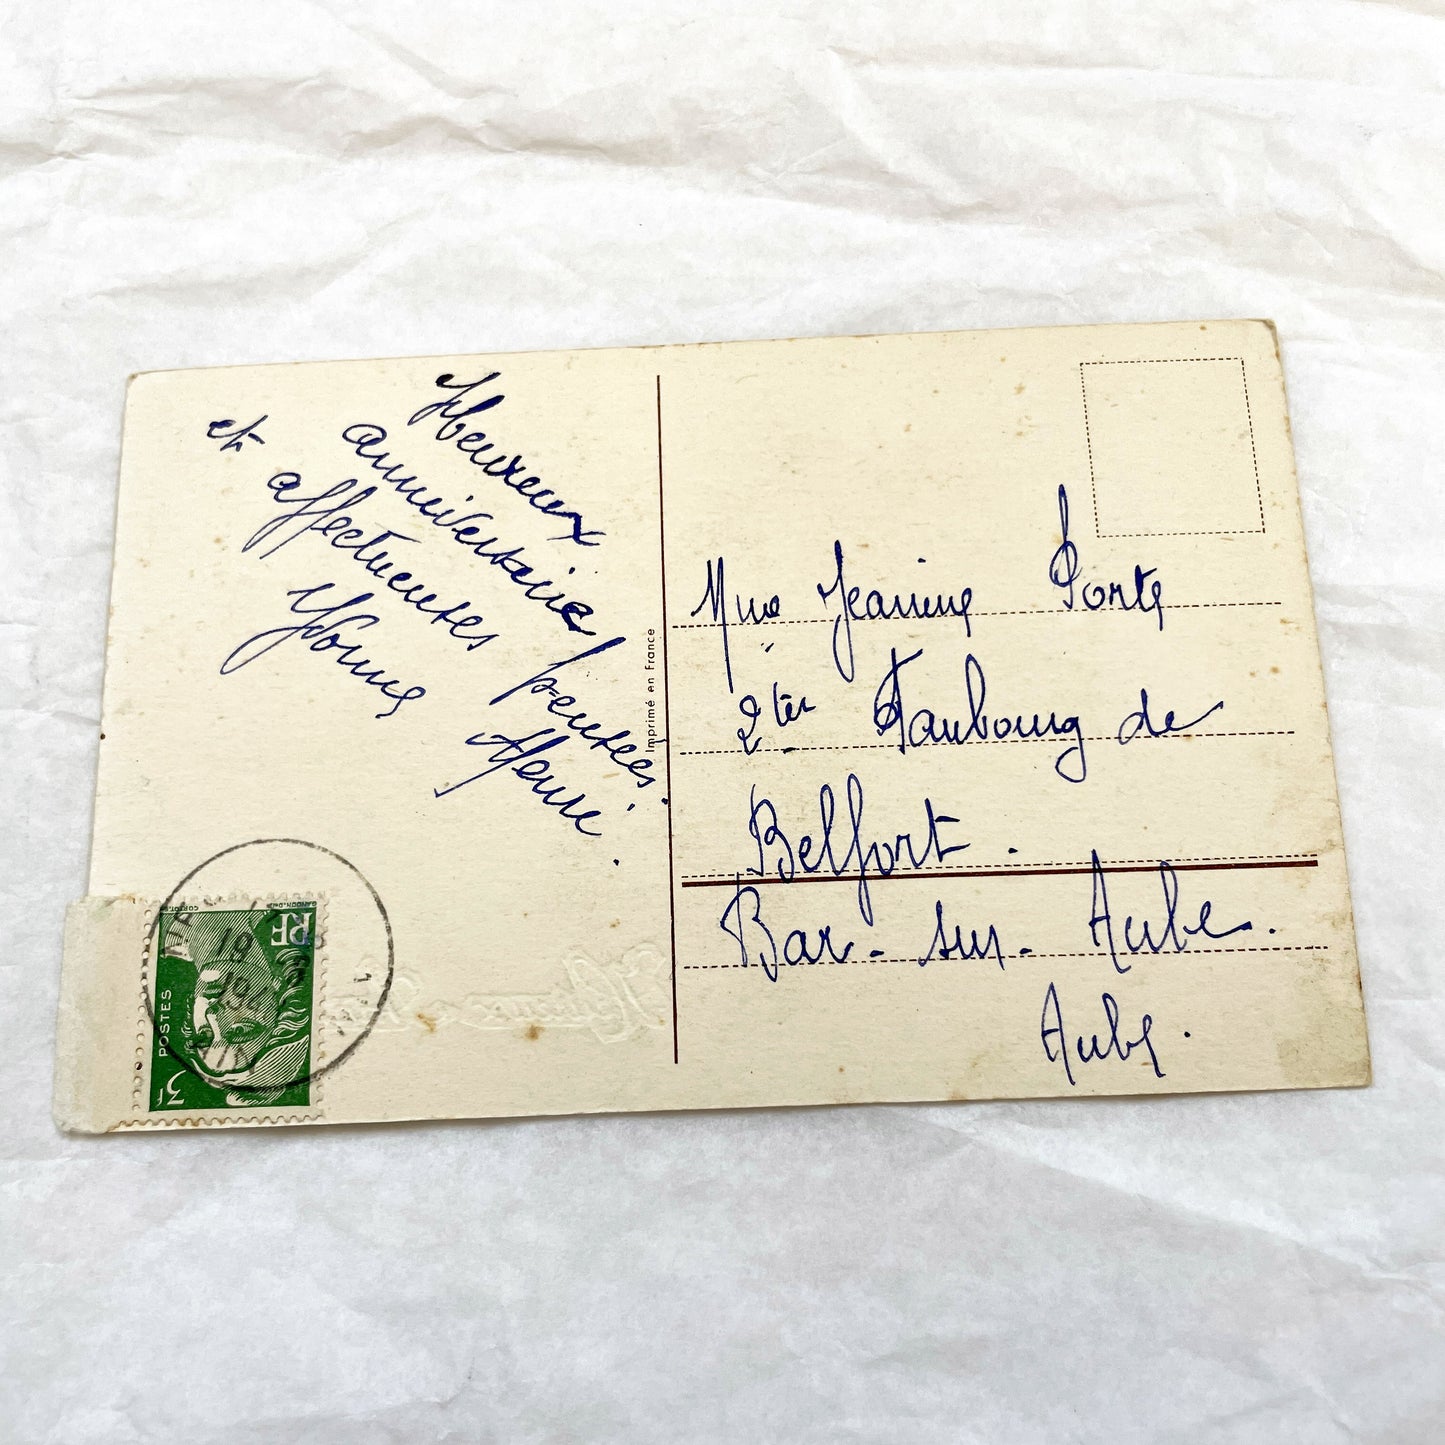 Heureux
anniversaire
et affectueuses pensées.
Yvonne Henri.
Imprimé en France
Mme Jeanine Porte
2 ter Faubourg de
Belfort.
Bar-sur-Aube.
Aube.
RF
POSTES
3F
GANDON
CORTOT
19